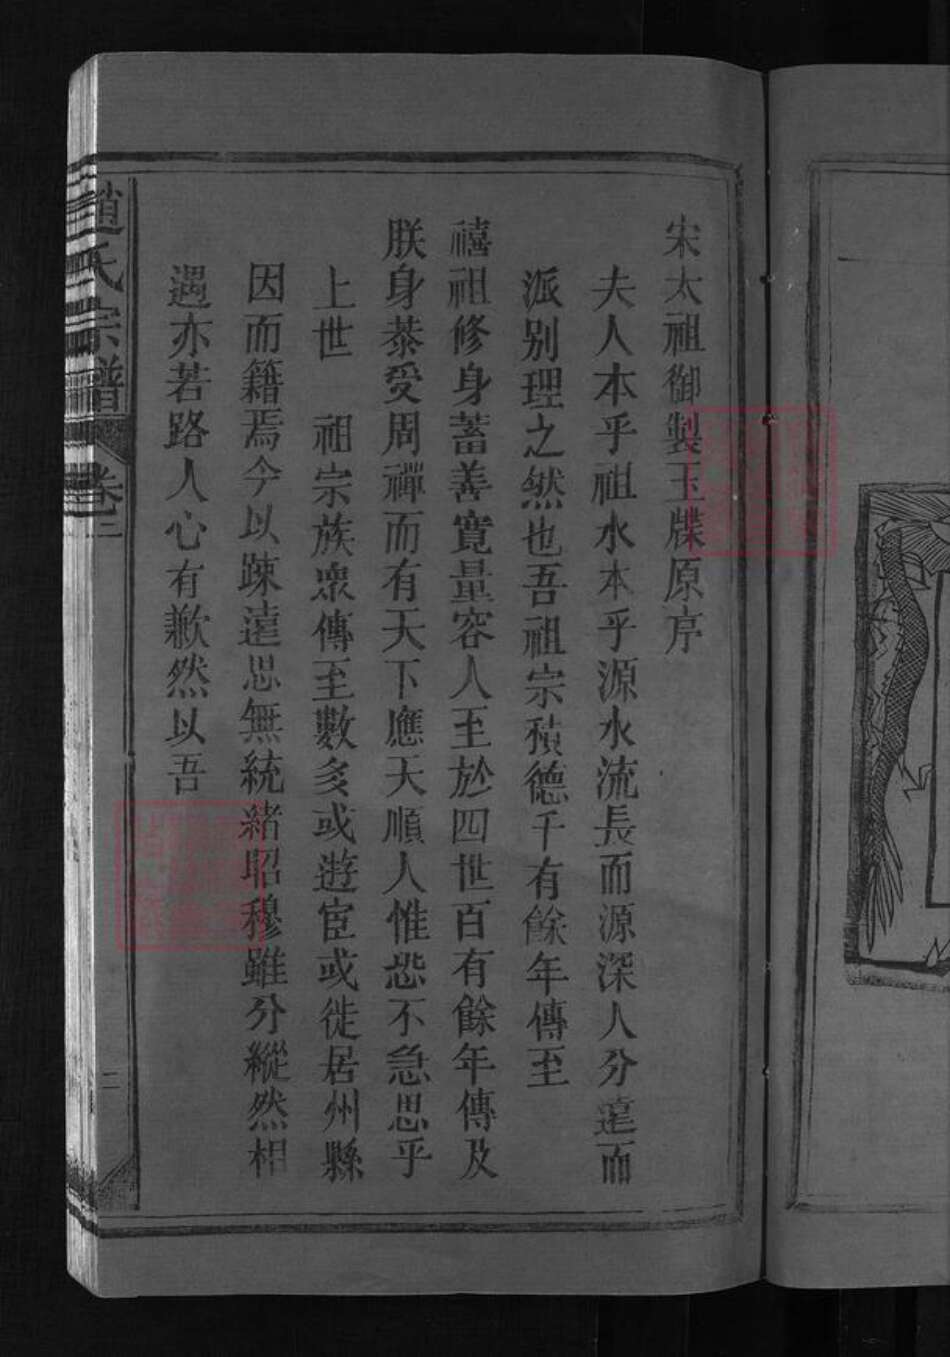 宋太祖御製玉牒原序
夫人本乎祖水本乎源水流長而源深人分遠而
派别理之然也吾祖宗積德千有餘年傳至
禧祖修身蓄善寬量容人至於四世百有餘年傳及
朕身忝受周禪而有天下應天順人惟恐不急思乎
上世　祖宗族衆傳至數多或遊宦或徙居州縣
因而籍焉今以踈遠思無統緒昭穆雖分縱然相
遇亦若路人心有歉然以吾
趙氏宗譜　卷二
二